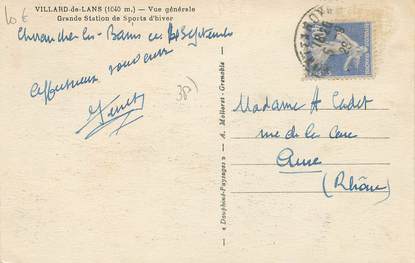 10 €
VILLARD-de-LANS (1040 m.) — Vue générale
Grande Station de Sports d'hiver
les-Bains ce Septembre
affectueux souvenir
38)
"Dauphiné-Paysages" — A. Mollaret - Grenoble
Madame A Cadet
rue de la
Anse
(Rhône)